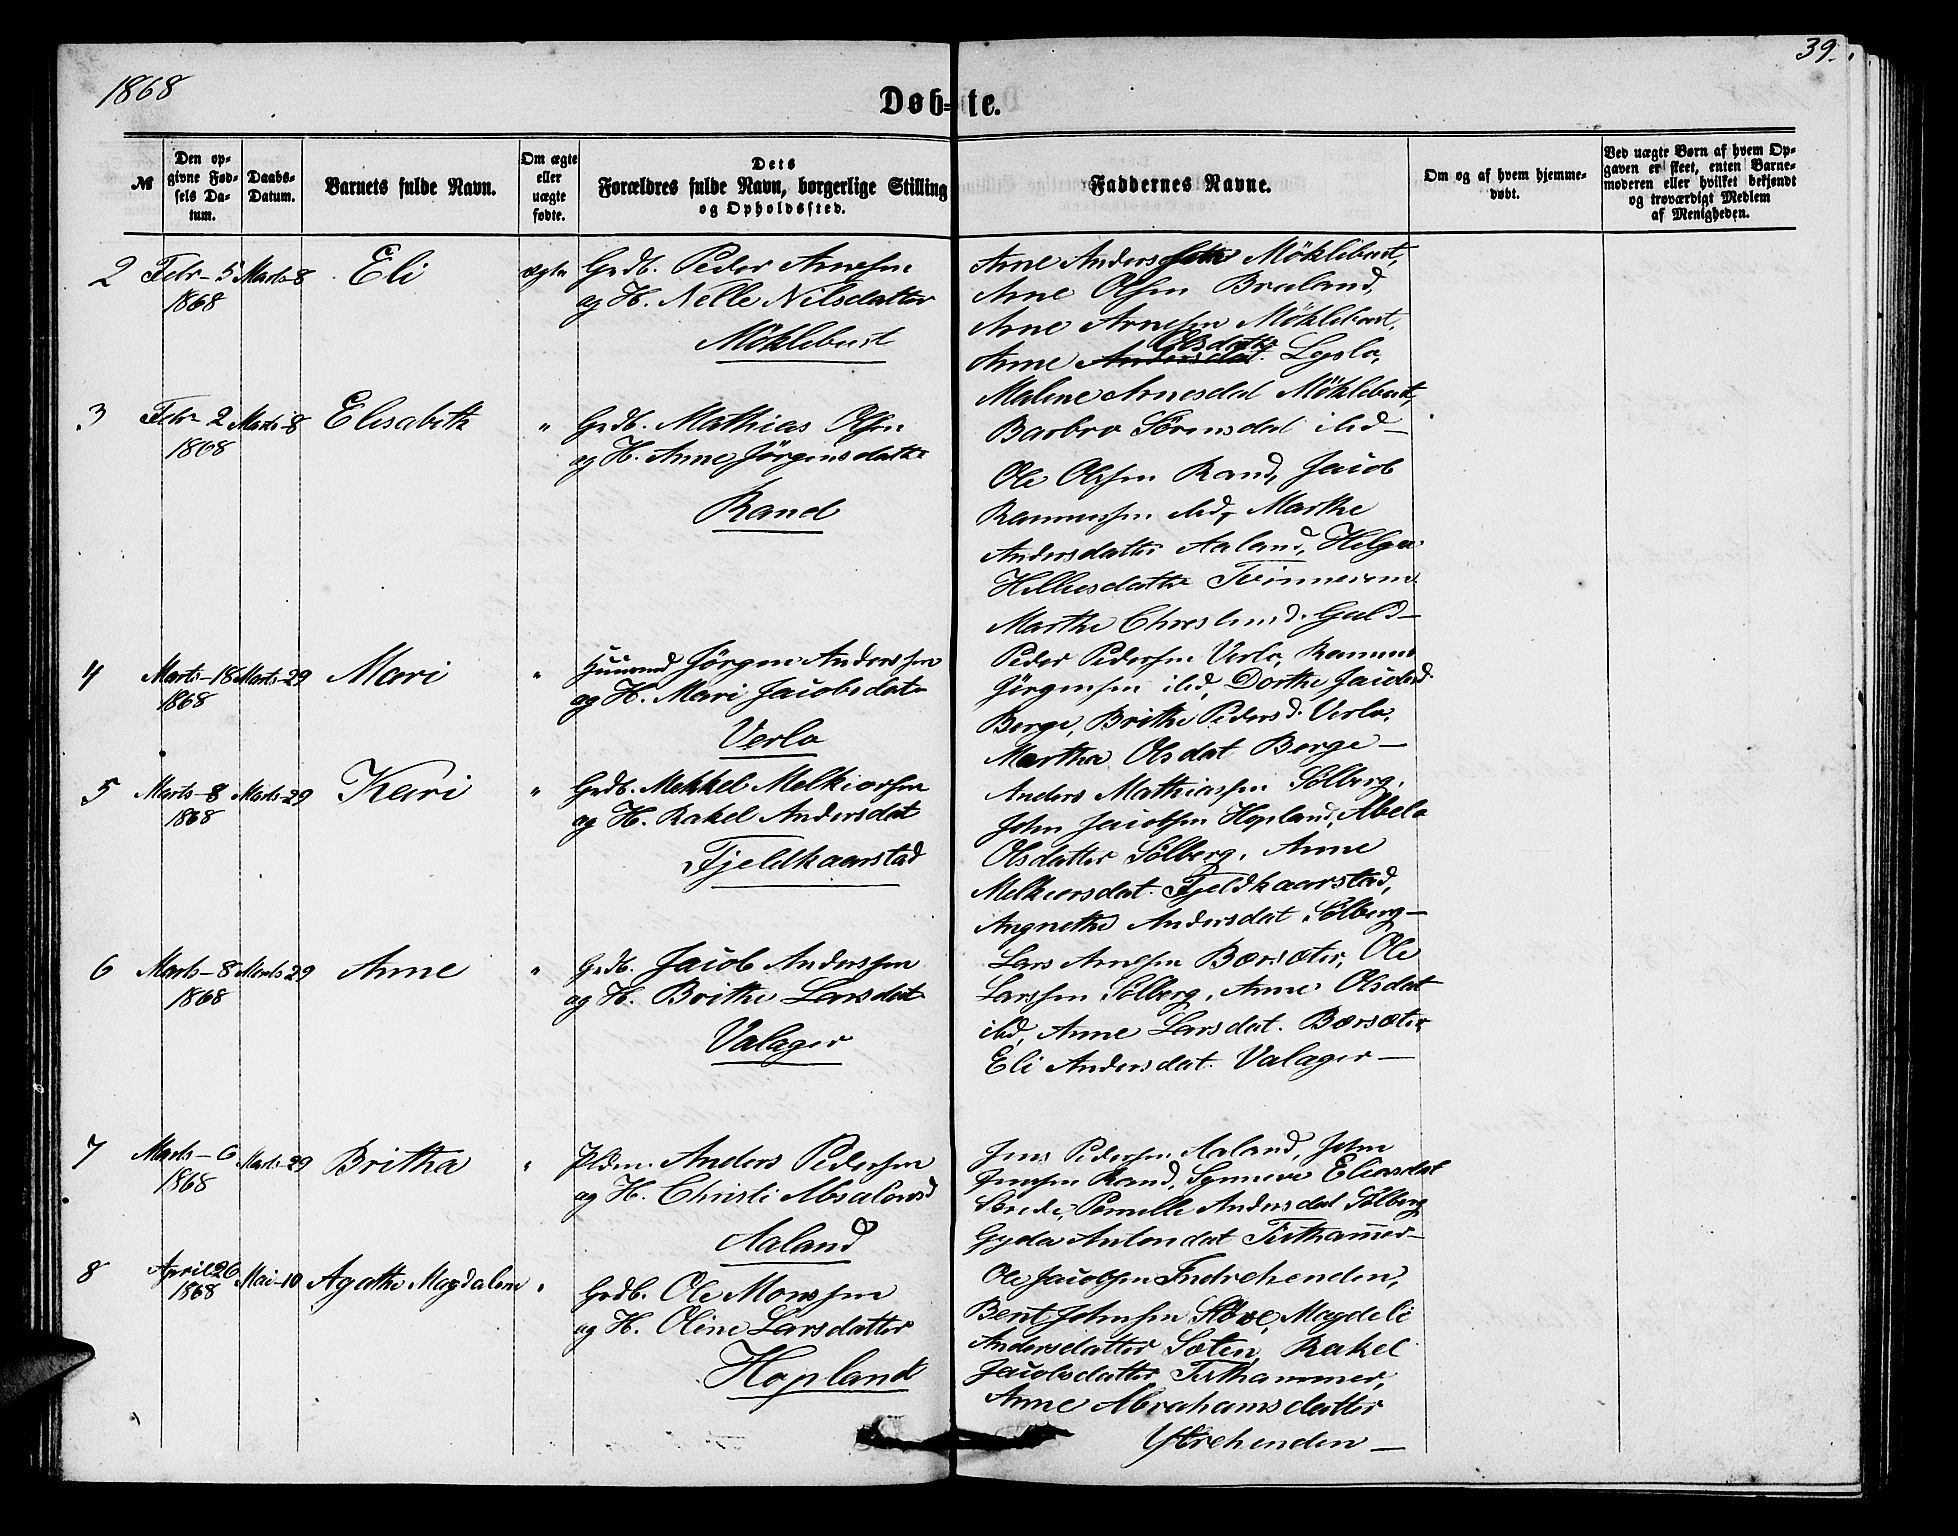 1868
39.
Døb=te.
№
Den op-
givne Fød-
sels Da-
tum.
Daabs-
Datum.
Barnets fulde Navn.
Om ægte
eller
uægte
fødte.
Dets
Forældres fulde Navn, borgerlige Stilling
og Opholdssted.
Faddernes Navne.
Om og af hvem hjemme-
døbt.
Ved uægte Børn af hvem Op-
gaven er skeet, enten Barne-
moderen eller hvilket bekjendt
og troværdigt Medlem
af Menigheden.
2 Febr. 5 Marts-8 Eli ægte Grdb. Peder Arnesen
1868 og H. Nelle Nilsdatter
Möklebust
Arne Anders Möklebust,
Arne Olsen Braland,
Arne Arnesen Möklebust,
Olsdatter
Anne Andersdat. Lyslo,
Malene Arnesdat Möklebust,
Barbro Sörensdat ibid-
3 Febr 2 Marts-8 Elisabeth " Grdb. Mathias Olsen
1868 og H. Anne Jörgensdatter
Rand
Ole Olsen Rand, Jacob
Rasmussen ibid, Marthe
Andersdatter Aaland, Helga
Marthe Guld-
4 Marts-18 Marts-29 Mari " Huusmd Jørgen Anderssen
1868 og H. Mari Jacobsdat
Verlo
Peder Pedersen Verlo, Rasmus
Jörgensen ibid, Dorthe Jacobsd.
Berge, Brithe Pedersd. Verlo,
Martha Olsdat Berge-
5 Marts-8 Marts-29 Kari " Grdb. Mekkel Melkiorsen
1868 og H. Rakel Andersdat
Fjeldkaarstad
Anders Mathiassen Solberg,
John Jacobsen Hopland, Abelo
Olsdatter Solberg, Anne
Melkiorsdat. Fjeldkaarstad,
Angnethe Andersdat Solberg-
6 Marts-8 Marts-29 Anne " Grdb. Jacob Anderssen
1868 og H. Brithe Larsdat
Valager
Lars Arnesen Borsæter, Ole
Larssen Solberg, Anne Olsdat
ibd, Anne Larsdat. Borsæter,
Eli Andersdat. Valager-
7 Marts-6 Marts-29 Britha " Pldm. Anders Pedersen
1868 og H. Christi Absalonsd
Aaland
Jens Pedersen Aaland, John
Jensen Rand, Synneve Eliasdat
Pernille Andersdat Solberg
Gyda Antondat Firthammer-
8 April 26 Mai-10 Agathe Magdalene " Grdb. Ole Monssen
1868 og H. Oline Larsdatter
Hopland
Ole Jacobsen Indrehenden,
Bent Johnsen Støve, Magdeli
Andersdatter Soten, Rakel
Jacobsdatter Firthammer,
Anne Abrahamsdatter
Ytrehenden-